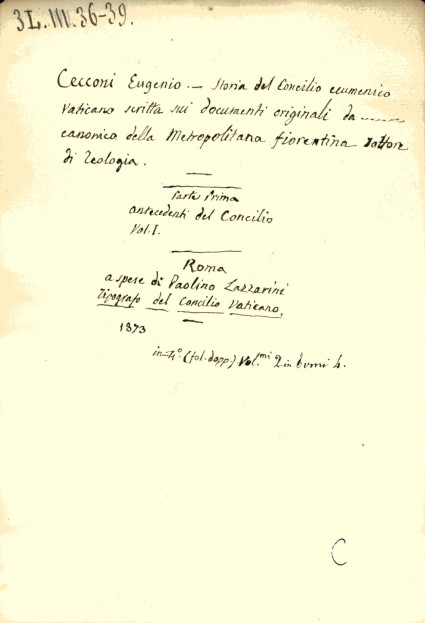 3L.III.36-39.
Cecconi Eugenio. — Storia del Concilio ecumenico
Vaticano scritta sui documenti originali da
canonico della Metropolitana fiorentina Dottore
di Teologia.
Parte Prima
antecedenti del Concilio
Vol. I.
Roma
a spese di Paolino Lazzarini
Tipografo del Concilio Vaticano.
1873
in-4°. (fol. dopp.) Vol.mi 2. in tomi 4.
C